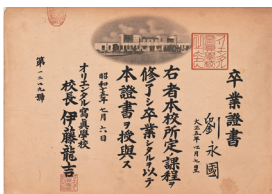 卒業證書
劉永國
大正五年七月九日生
右者本校所定ノ課程ヲ
修了シ卒業シタルヲ以テ
本證書ヲ授與ス
昭和十五年七月六日
オリエンタル寫真學校
校長 伊藤龍吉
第一二一九號